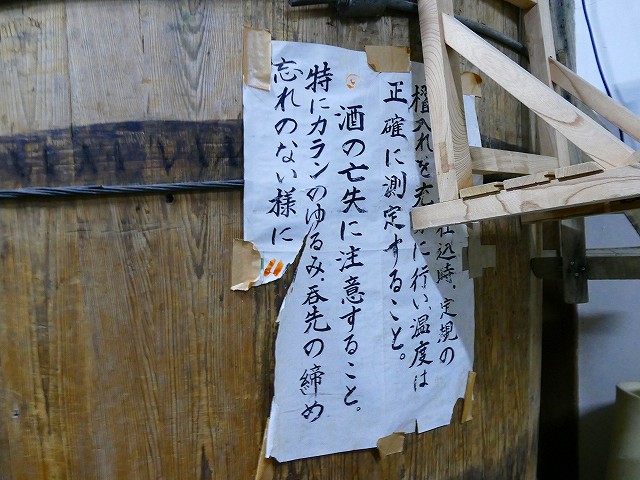 仕込時、定規の
櫂入れを充分に行い、温度は
正確に測定すること。
酒の亡失に注意すること。
特にカランのゆるみ、呑先の締め
忘れのない様に